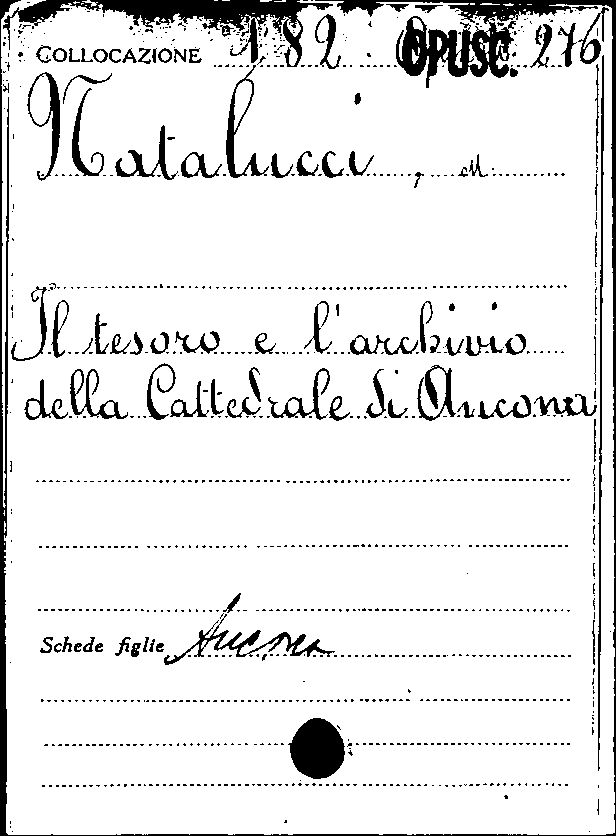 COLLOCAZIONE 182. OPUSC. 276
Natalucci, M.
Il tesoro e l'archivio
della Cattedrale di Ancona
Schede figlie Ancona